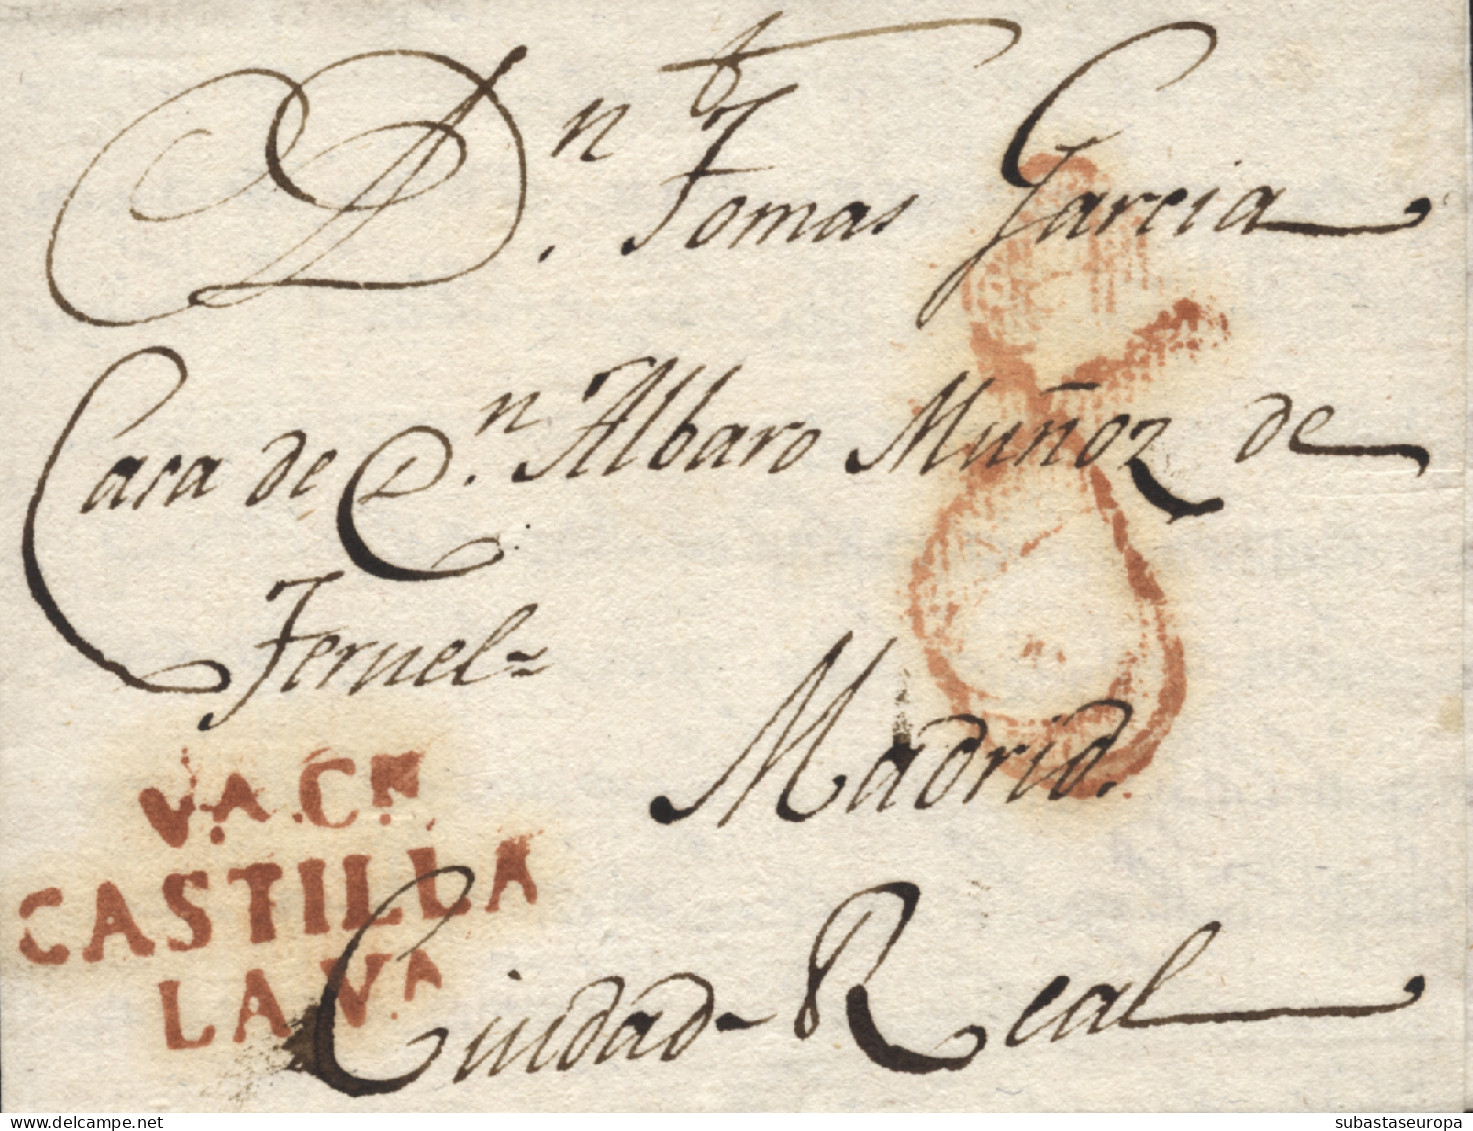 A Dn. Tomas Garcia
Casa de Dn. Albaro Muñoz de
Teruel=
Madrid.
V.A C.N
CASTILLA
LA V.A
Ciudad-Real
8
subastaseuropa